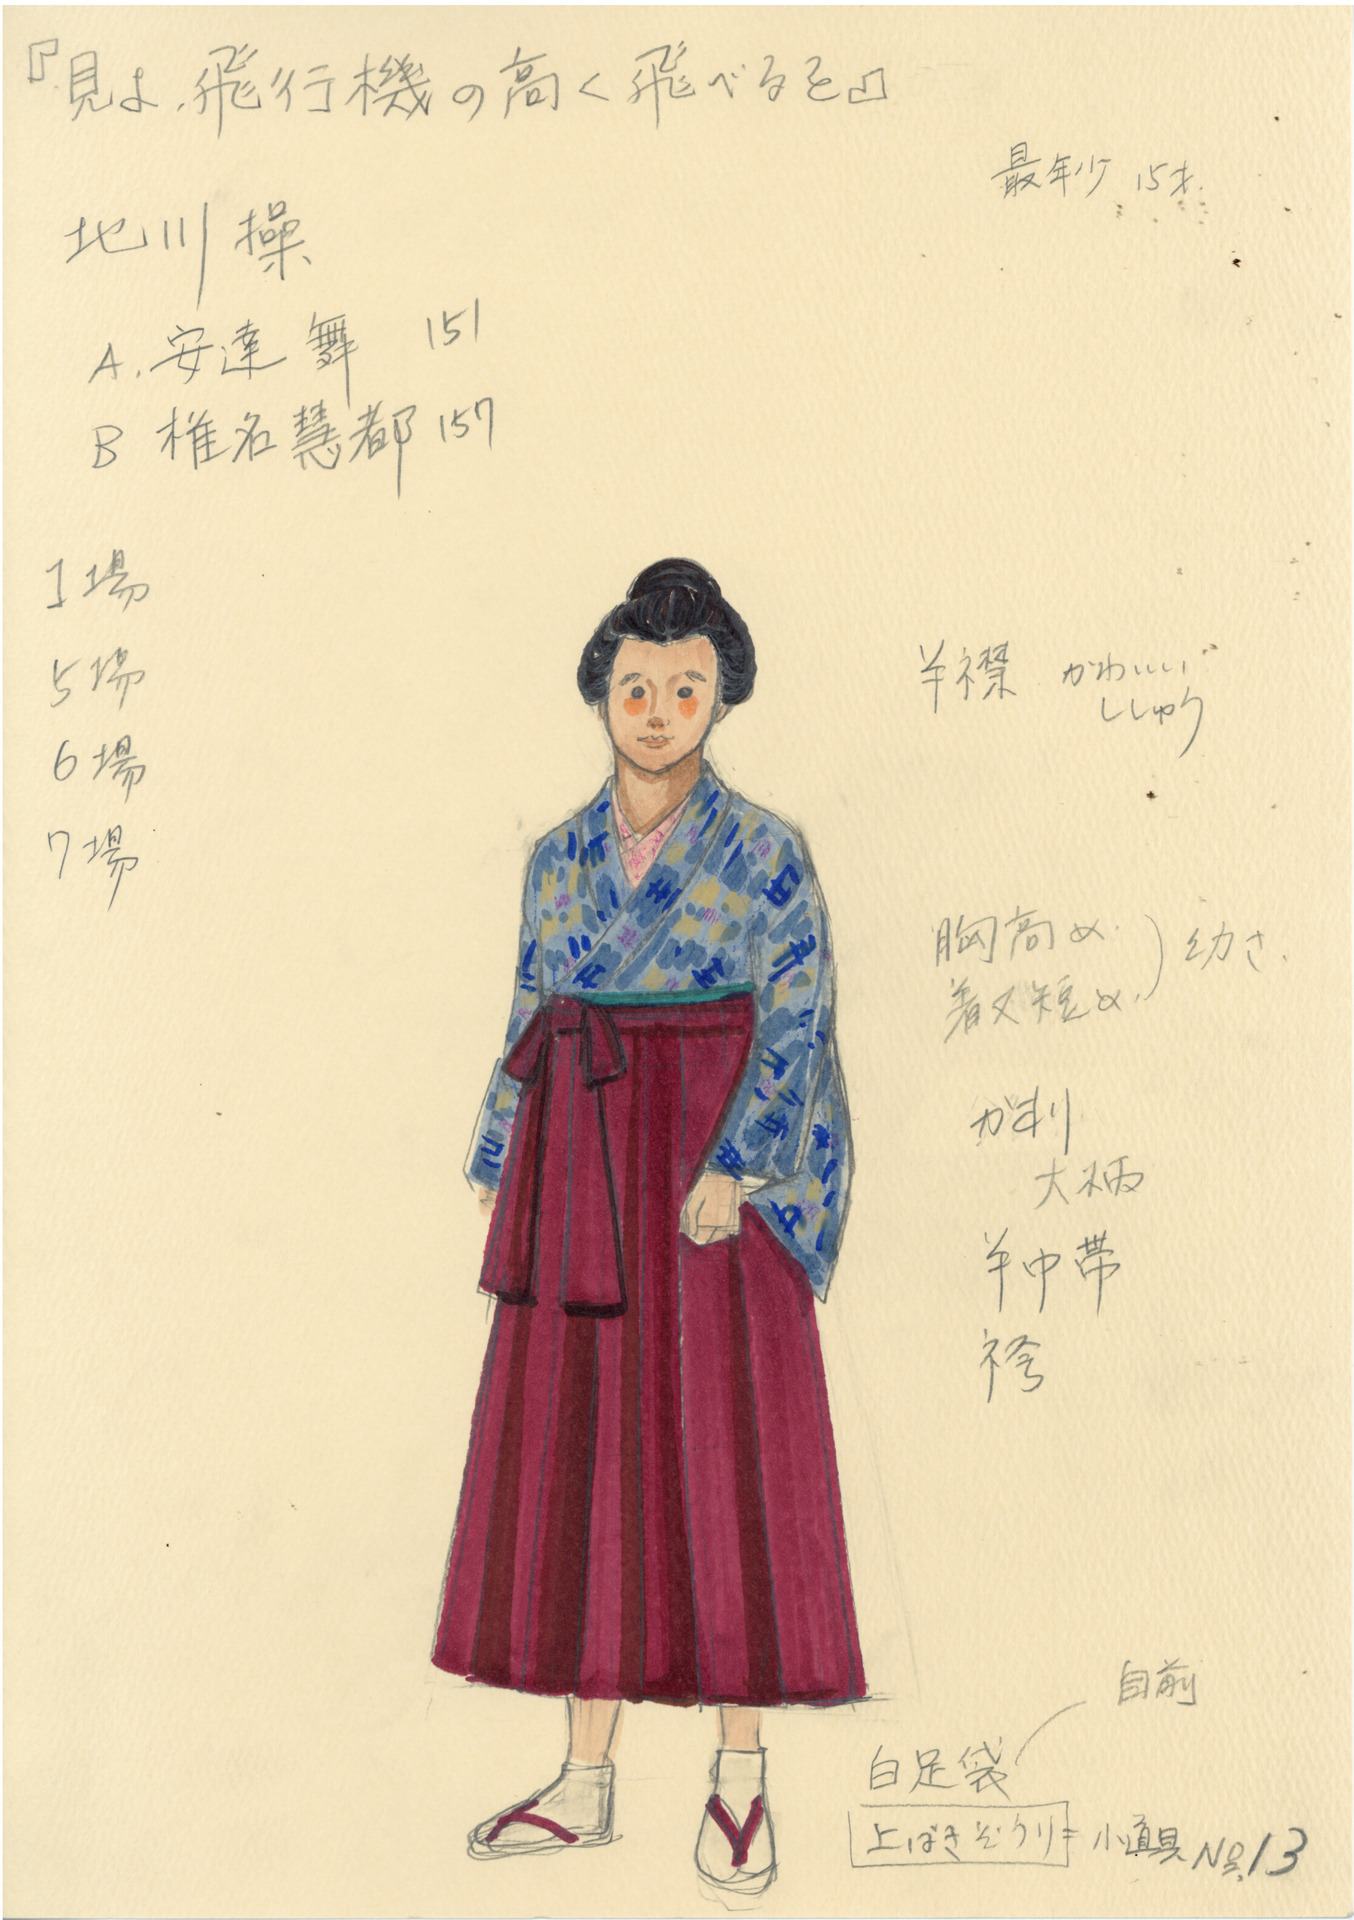 『見よ、飛行機の高く飛べるを』
最年少 15才.
北川 操
A. 安達 舞 151
B 椎名慧都 157
1場
5場
6場
7場
半襟 かわいい
ししゅう
胸高め.
着丈短め.
幼さ.
がすり
大柄
半巾帯
袴
自前
白足袋
上ばきぞうり = 小道具
No.13